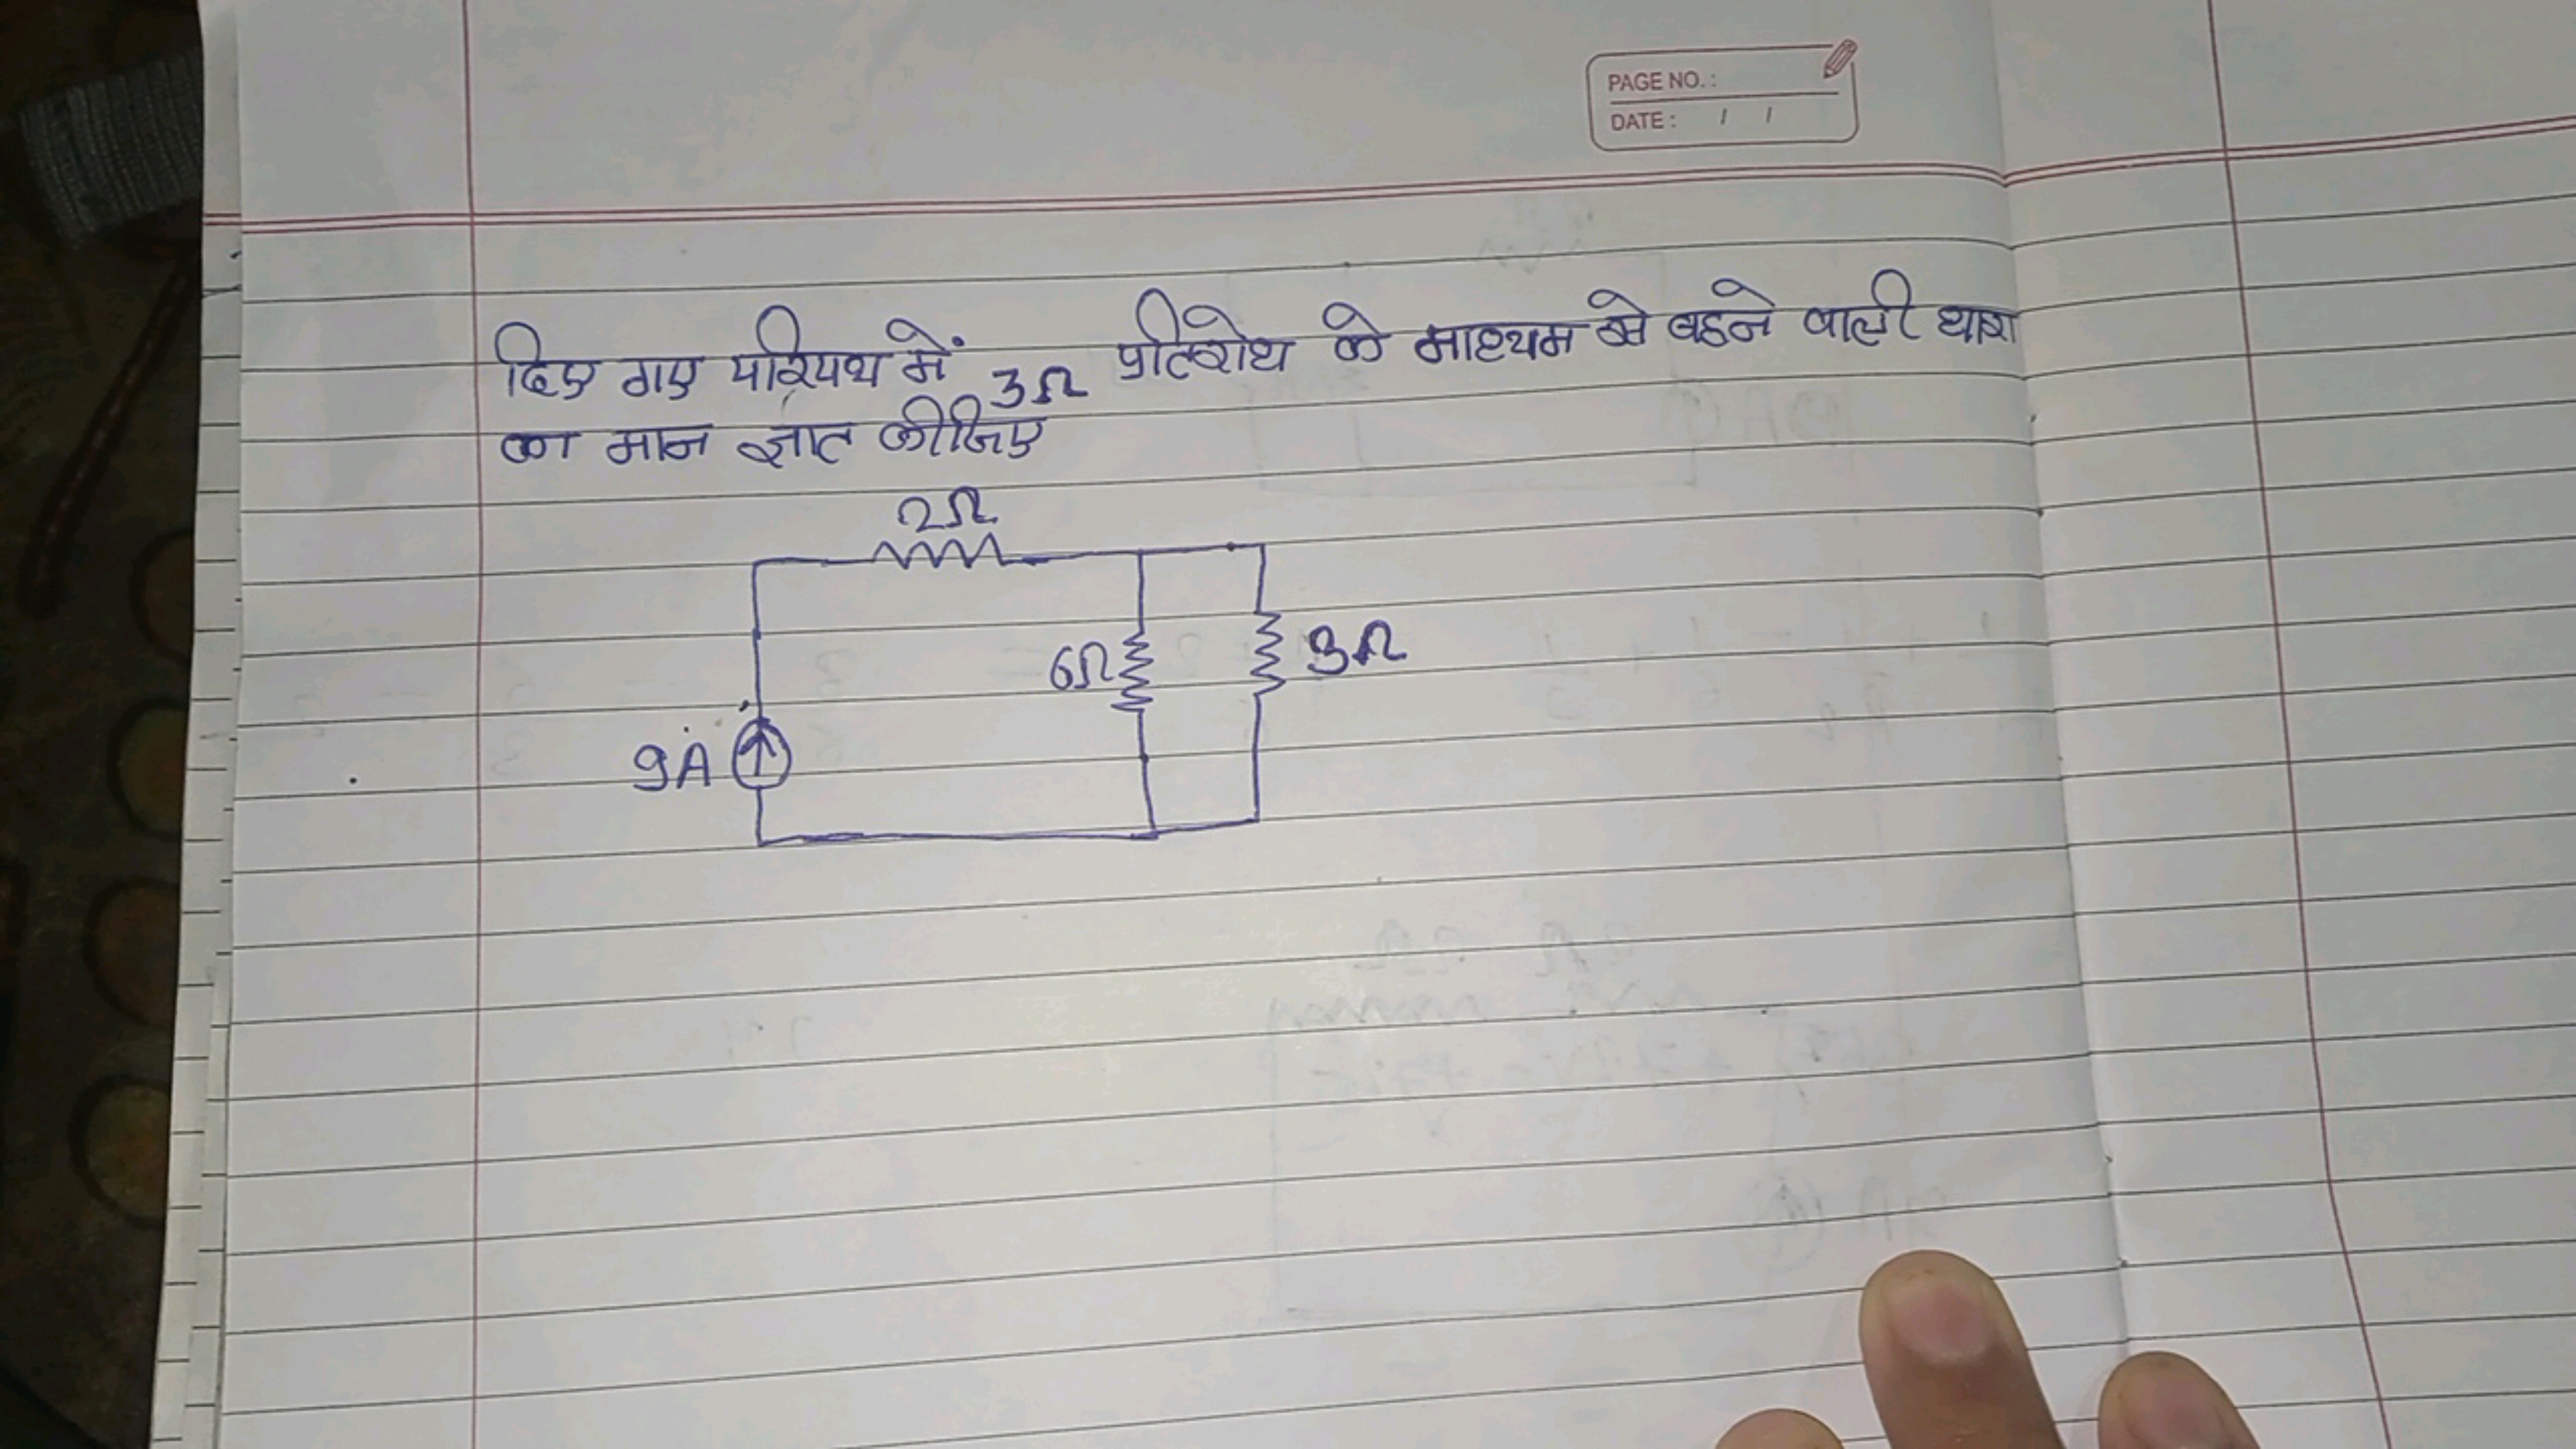 PAGE NO.:
DATE: / /
दिए गए परिपथ में 3Ω प्रतिरोध के माध्यम से बहने वाली धारा
का मान ज्ञात कीजिए
2Ω
6Ω 3Ω
9A